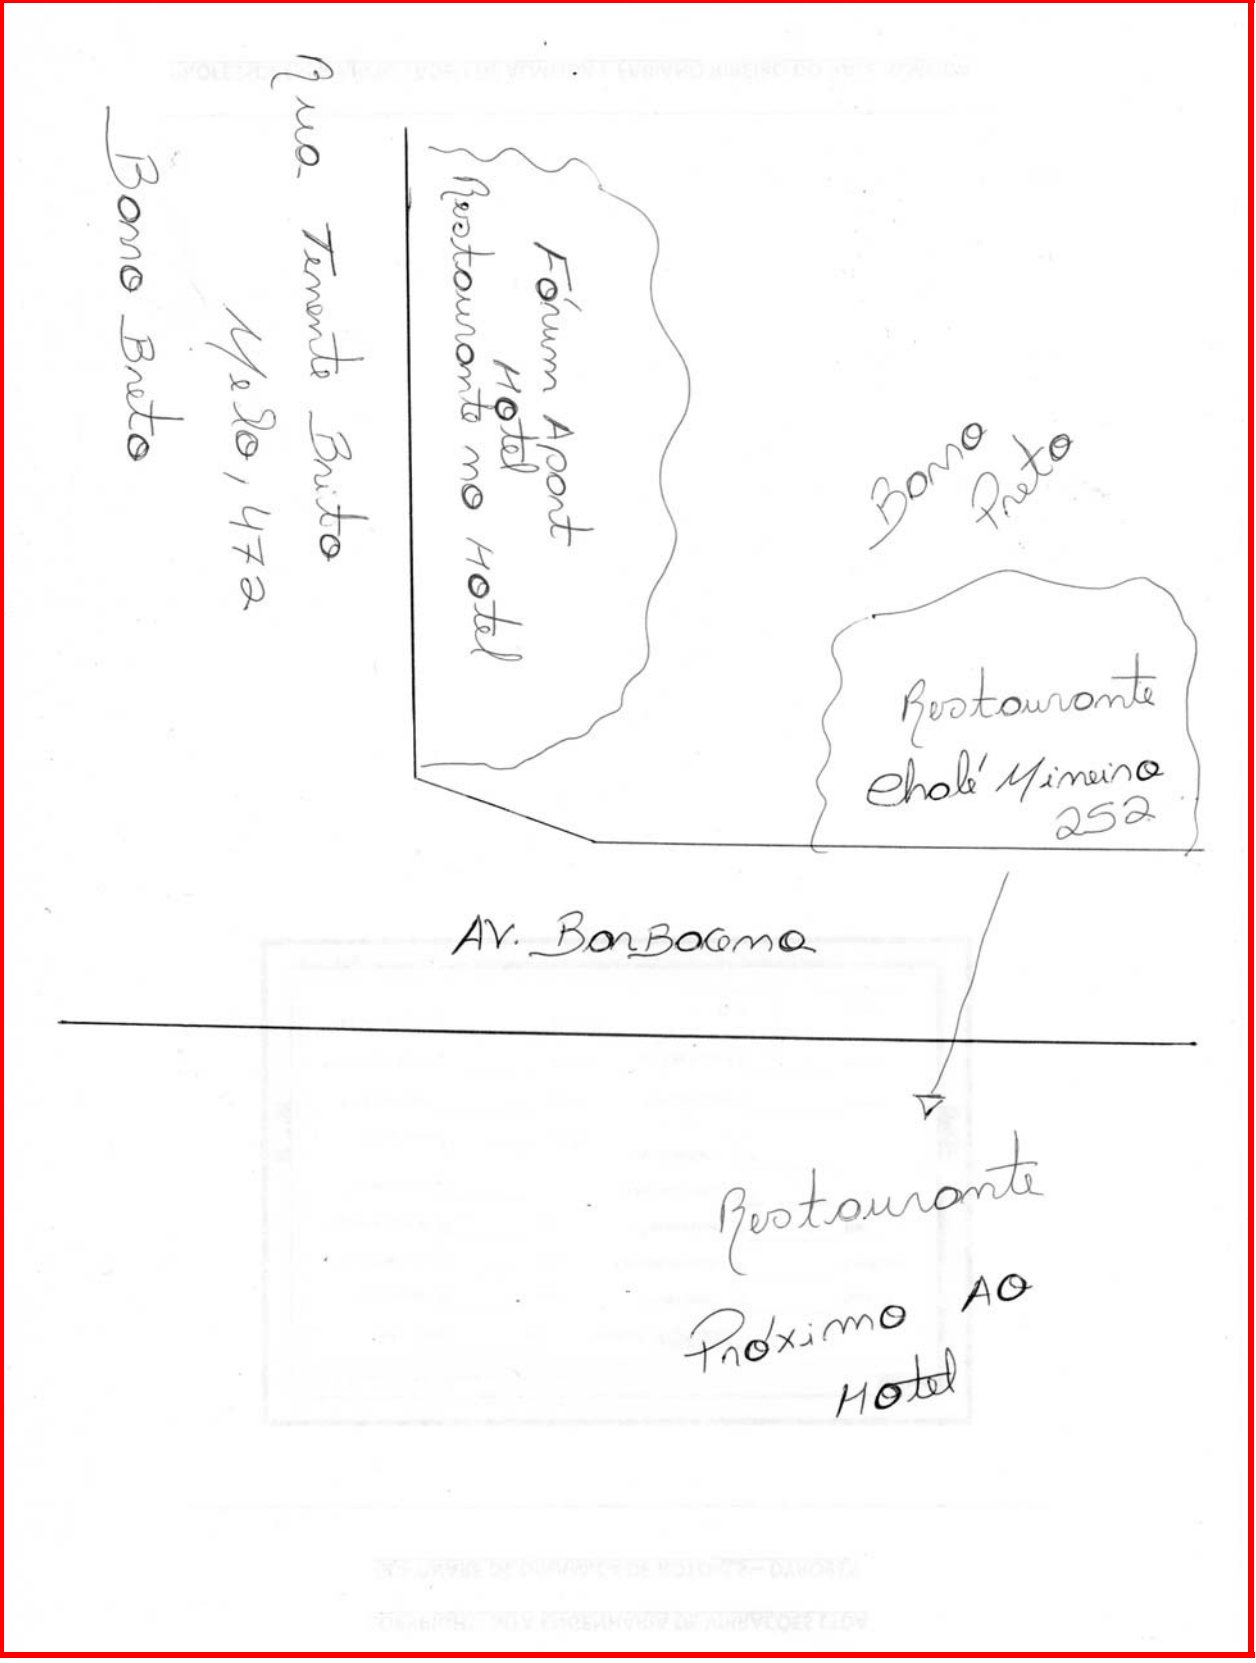 Rua Tenente Brito
Melo, 472
Barro Breto
Fórum Apart
Hotel
Restaurante no Hotel
Barro
Preto
Restaurante
Chalé Mineiro
252
AV. BarBacena
Restaurante
Próximo AO
Hotel